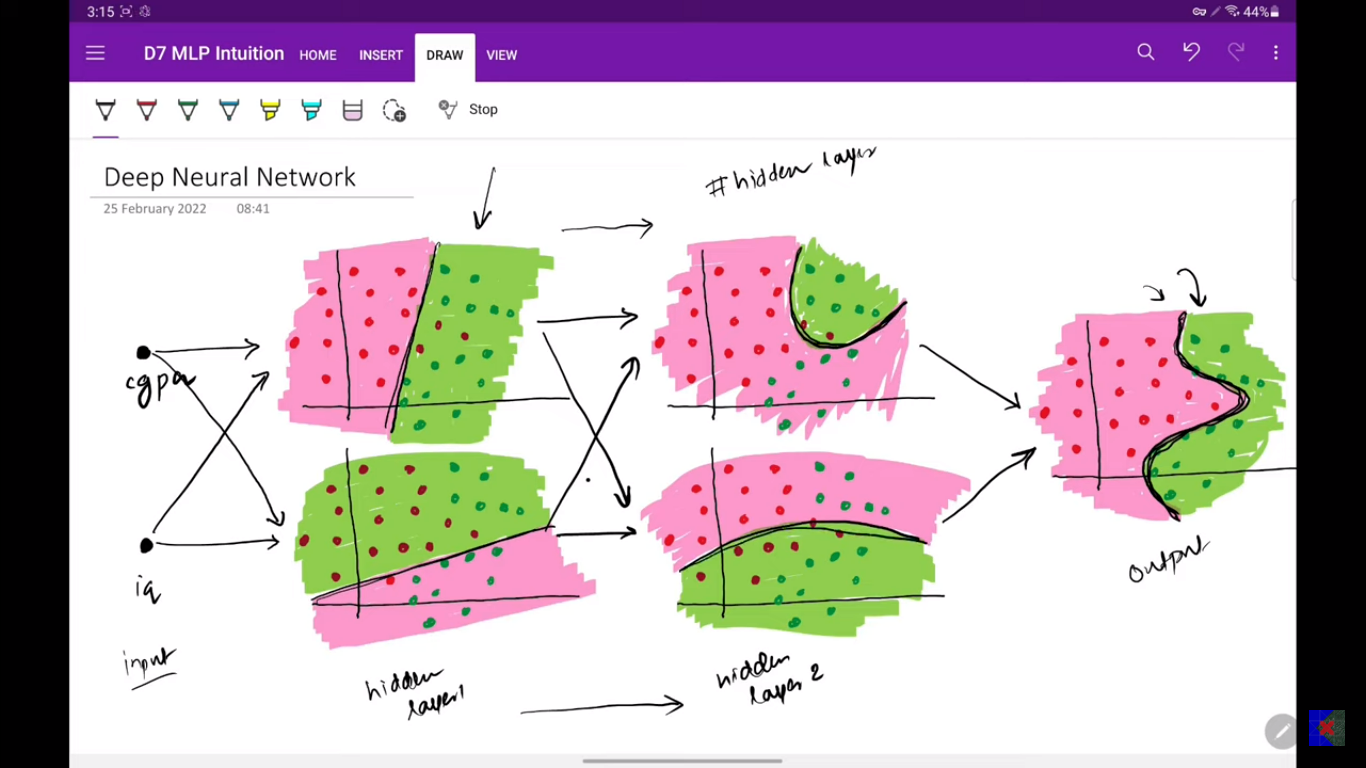 3:15 44%
D7 MLP Intuition HOME INSERT DRAW VIEW
Stop
Deep Neural Network
25 February 2022 08:41
#hidden layer
cgpa
iq
input
hidden
layer1
hidden
layer 2
output